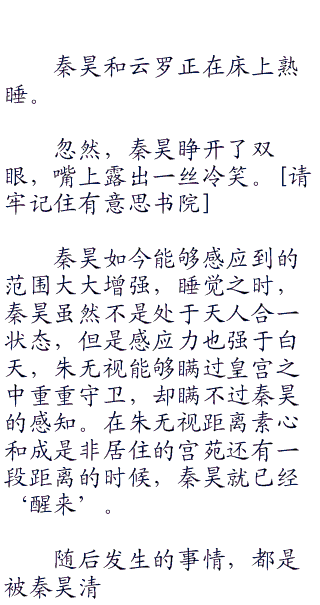 秦昊和云罗正在床上熟
睡。
忽然，秦昊睁开了双
眼，嘴上露出一丝冷笑。[请
牢记住有意思书院]
秦昊如今能够感应到的
范围大大增强，睡觉之时，
秦昊虽然不是处于天人合一
状态，但是感应力也强于白
天，朱无视能够瞒过皇宫之
中重重守卫，却瞒不过秦昊
的感知。在朱无视距离素心
和成是非居住的宫苑还有一
段距离的时候，秦昊就已经
‘醒来’。
随后发生的事情，都是
被秦昊清